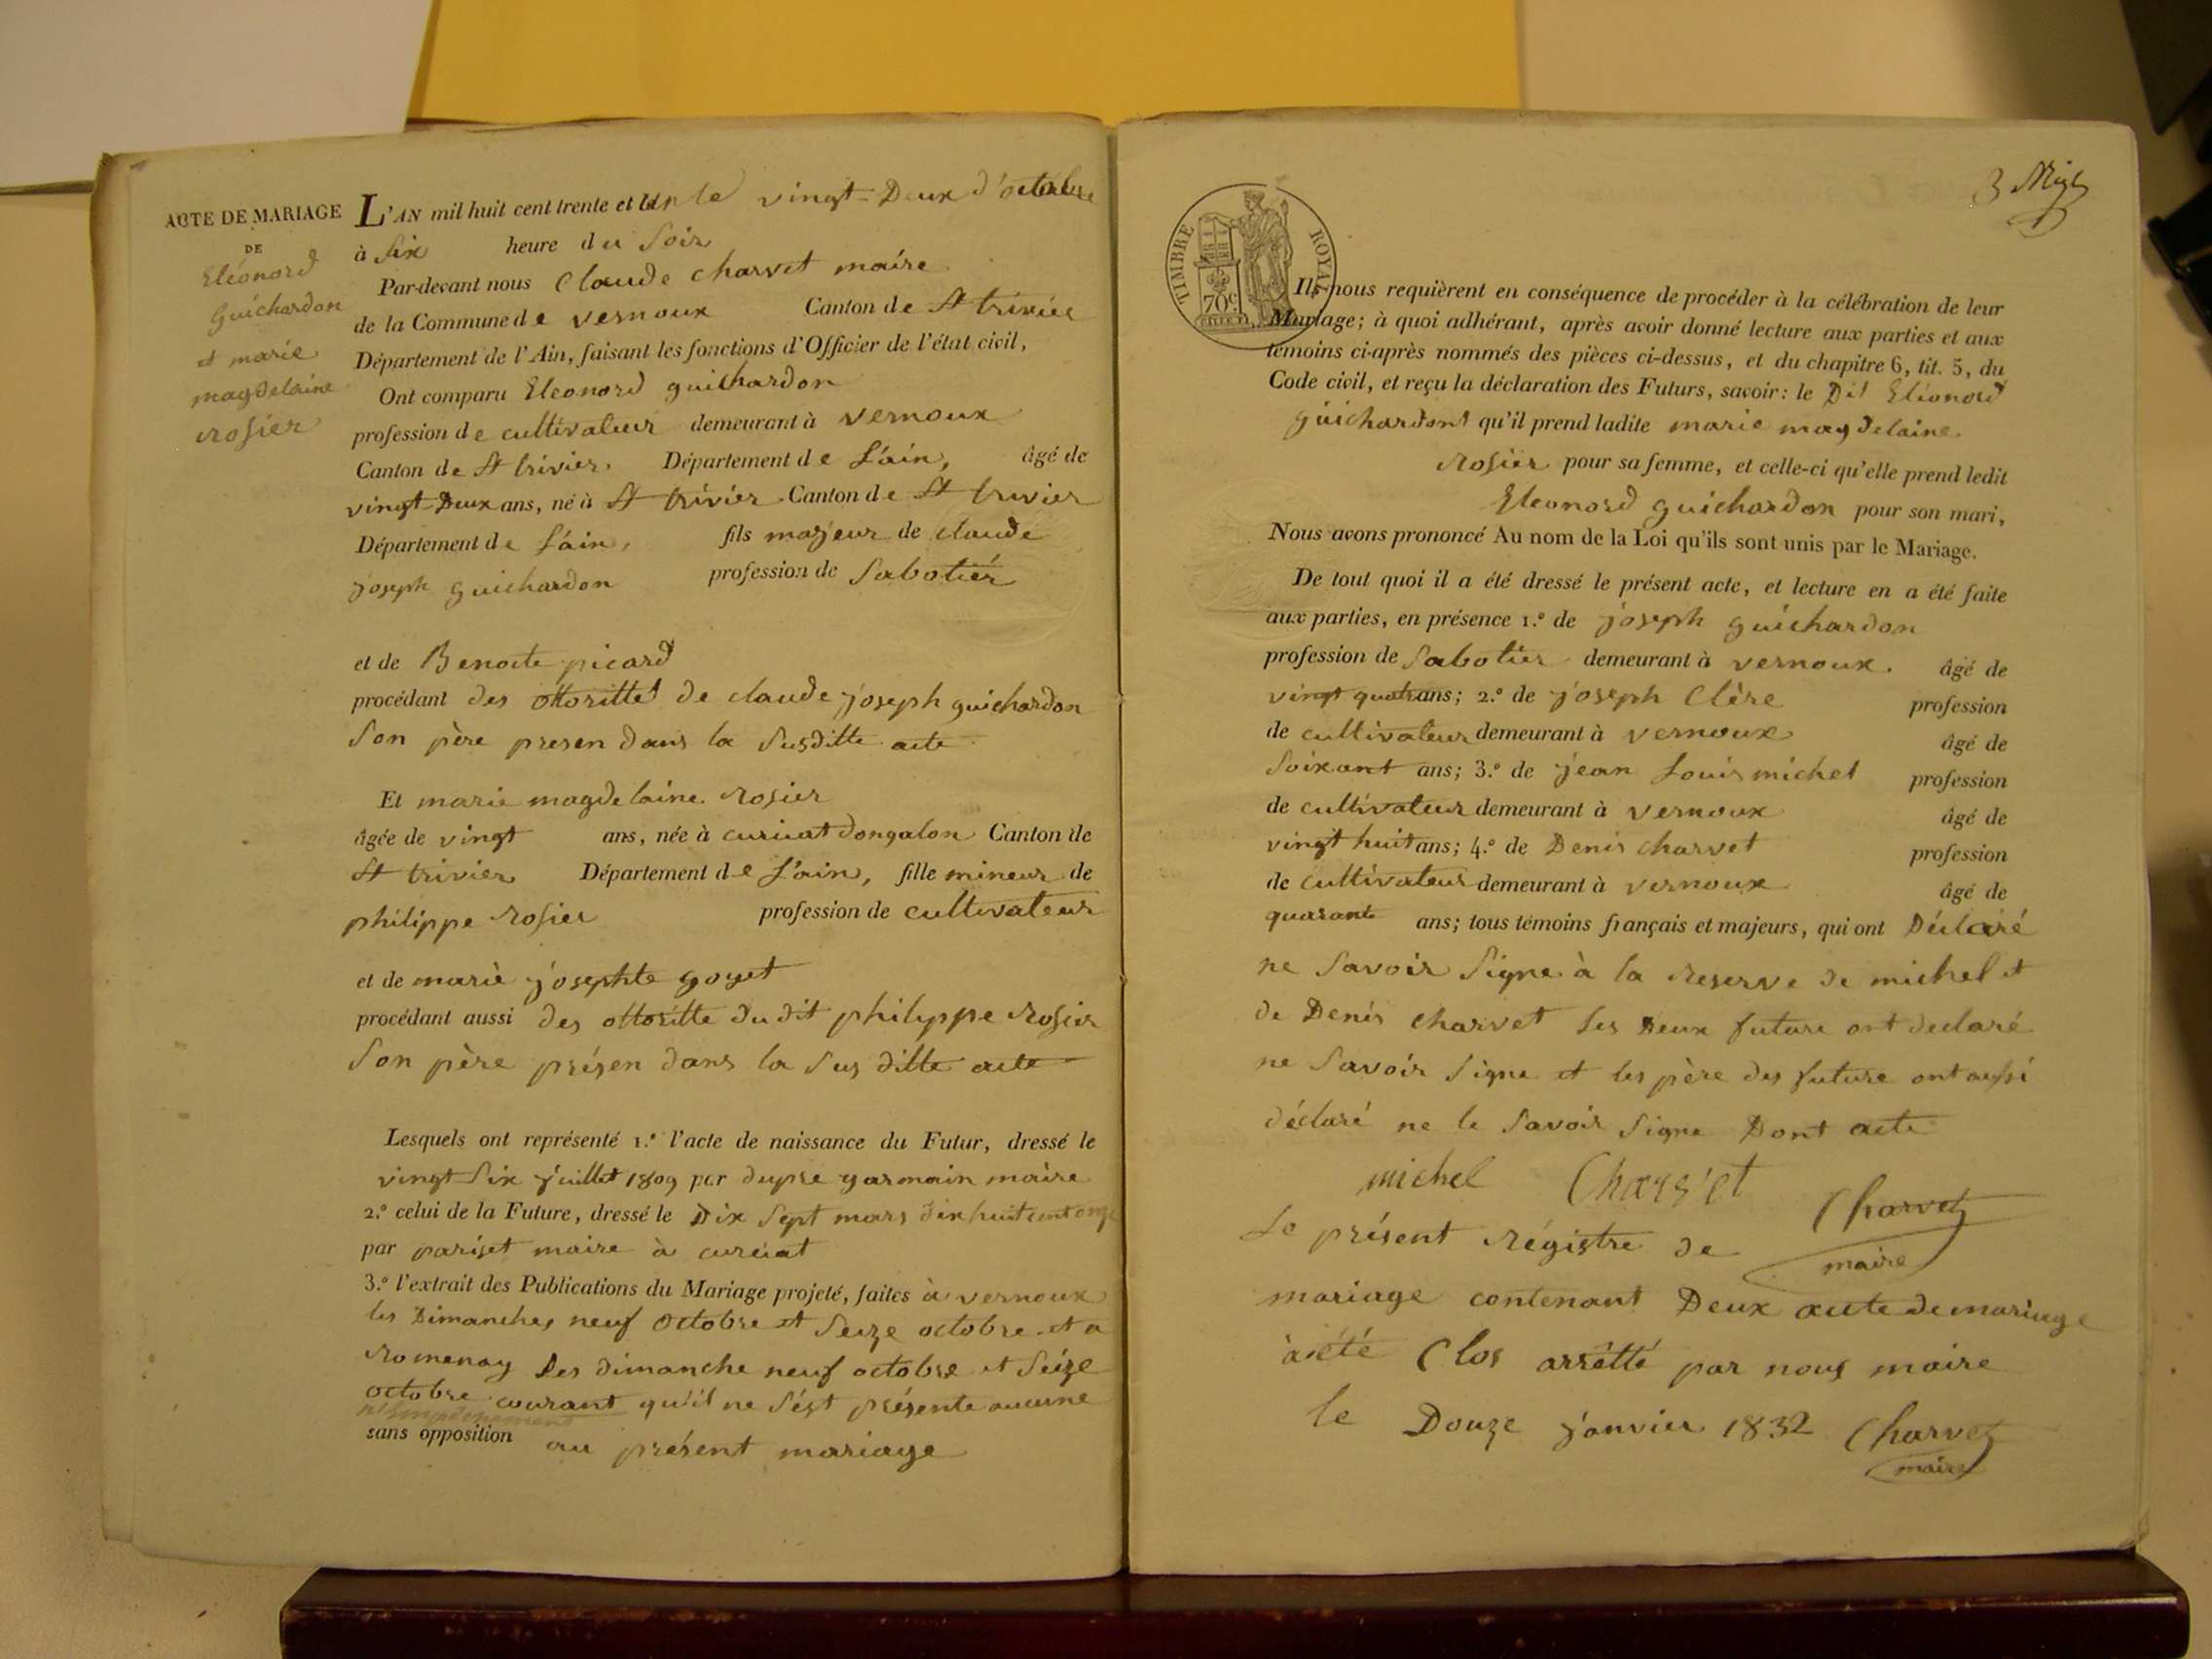 ACTE DE MARIAGE
DE
Eléonord
Guichardon
et marie
magdelaine
rosier
L'AN mil huit cent trente et un le vingt-Deux d'octobre
à Six heure du Soir
Par-devant nous Claude Charvet maire
de la Commune de vernoux Canton de St trivier
Département de l'Ain, faisant les fonctions d'Officier de l'état civil,
Ont comparu Eleonord guichardon
profession de cultivateur demeurant à vernoux
Canton de St trivier Département de L'ain, âgé de
vingt-Deux ans, né à St trivier Canton de St trivier
Département de L'ain, fils majeur de claude
joseph guichardon profession de Sabotier
et de Benoite picard
procédant des ottoritté de claude joseph guichardon
Son père presen dans la Susditte acte
Et marie magdelaine rosier
âgée de vingt ans, née à curciat dongalon Canton de
St trivier Département de L'ain, fille mineur de
philippe rosier profession de cultivateur
et de marie josephte goyet
procédant aussi des ottoritte du dit philippe rosier
Son père présen dans la Sus ditte acte
Lesquels ont représenté 1.º l'acte de naissance du Futur, dressé le
vingt Six juillet 1809 par dupre garmain maire
2.º celui de la Future, dressé le Dix Sept mars dix huit cent onze
par pariset maire à curciat
3.º l'extrait des Publications du Mariage projeté, faites à vernoux
les Dimanches neuf octobre et Seize octobre et a
romenay Les dimanche neuf octobre et Seize
octobre courant qu'il ne S'est présente aucune
n'Empechement
sans opposition au présent mariage
3 Mge
TIMBRE ROYAL
70c
Ils nous requièrent en conséquence de procéder à la célébration de leur
Mariage; à quoi adhérant, après avoir donné lecture aux parties et aux
témoins ci-après nommés des pièces ci-dessus, et du chapitre 6, tit. 5, du
Code civil, et reçu la déclaration des Futurs, savoir: le Dit Eléonord
guichardont qu'il prend ladite marie magdelaine
rosier pour sa femme, et celle-ci qu'elle prend ledit
Eleonord guichardon pour son mari,
Nous avons prononcé Au nom de la Loi qu'ils sont unis par le Mariage.
De tout quoi il a été dressé le présent acte, et lecture en a été faite
aux parties, en présence 1.º de joseph guichardon
profession de Sabotier demeurant à vernoux. âgé de
vingt quatre ans; 2.º de joseph Clère profession
de cultivateur demeurant à vernoux âgé de
Soixant ans; 3.º de jean Louis michel profession
de cultivateur demeurant à vernoux âgé de
vingt huit ans; 4.º de Denis charvet profession
de cultivateur demeurant à vernoux âgé de
quarante ans; tous témoins français et majeurs, qui ont Déclaré
ne Savoir Signe à la reserve de michel et
de Denis charvet Les Deux future ont declaré
ne Savoir Signe et les père des future ont aussi
déclaré ne le Savoir Signe Dont acte
michel Charvet Charvet
maire
Le présent régistre de
mariage contenant Deux acte de mariage
à été Clos arrêtté par nous maire
le Douze janvier 1832 Charvet
maire